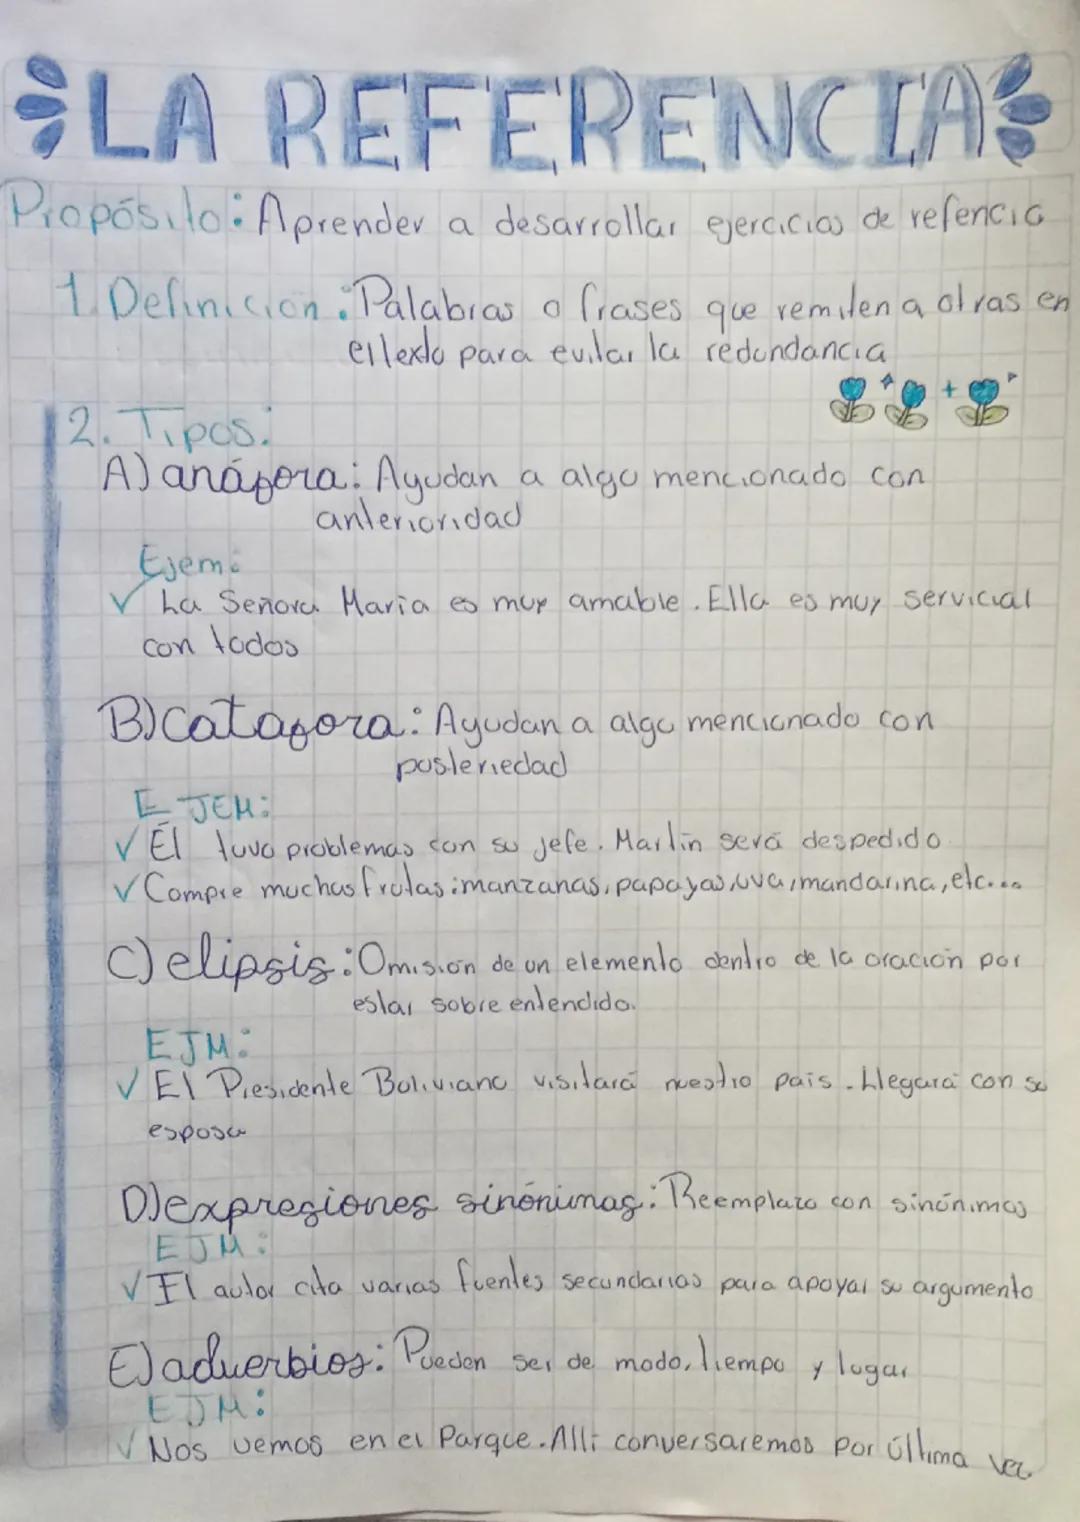 LA REFERENCIA
Propósito: Aprender a desarrollar ejercicios de refencia
1. Definición: Palabras o frases que remiten a otras en
el texto para evitar la redundancia
2. Tipos:
A) anáfora: Ayudan a algo mencionado con
anterioridad
Ejem:
✓ La Señora María es muy amable. Ella es muy servicial
con todos
B) catafora: Ayudan a algo mencionado con
posteriedad
EJEM:
✓ Él tuvo problemas con su jefe. Martín será despedido
✓ Compre muchas frutas: manzanas, papayas, uva, mandarina, etc...
C) elipsis: Omisión de un elemento dentro de la oración por
estar sobre entendido.
EJM:
✓ El Presidente Boliviano visitará nuestro país. Llegará con su
esposa
D) expresiones sinónimas: Reemplazo con sinónimos
EJM:
✓ El autor cita varias fuentes secundarias para apoyar su argumento
E) adverbios: Pueden ser de modo, tiempo y lugar
EJM:
✓ Nos vemos en el Parque. Allí conversaremos por última vez